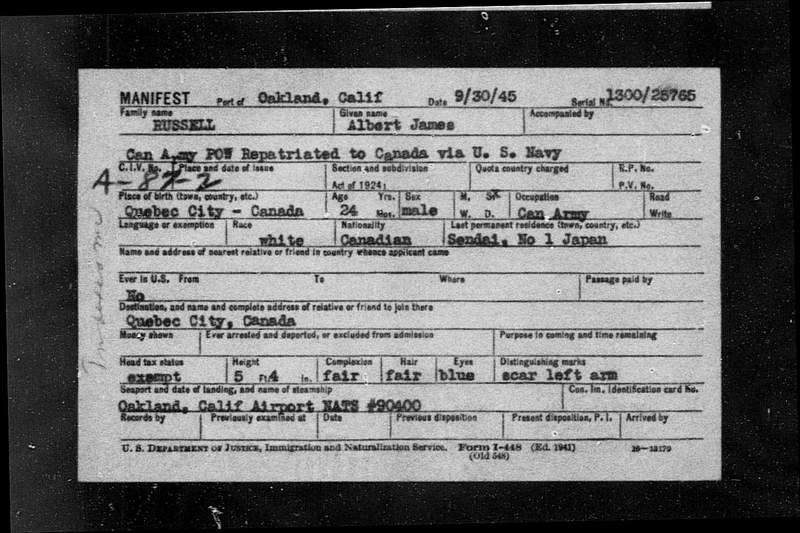 MANIFEST Port of Oakland, Calif Date 9/30/45 Serial No. 1300/25765
Family name Given name Accompanied by
RUSSELL Albert James
Can Army POW Repatriated to Canada via U. S. Navy
C.I.V. No. Place and date of issue Section and subdivision Quota country charged R.P. No.
A-87-2 Act of 1924: P.V. No.
Place of birth (town, country, etc.) Age Yrs. Sex M. S. Occupation Read
Quebec City - Canada 24 Mos. male W. D. Can Army Write
Language or exemption Race Nationality Last permanent residence (town, country, etc.)
white Canadian Sendai, No 1 Japan
Name and address of nearest relative or friend in country whence applicant came
Ever in U.S. From To Where Passage paid by
No
Destination, and name and complete address of relative or friend to join there
Quebec City, Canada
Money shown Ever arrested and deported, or excluded from admission Purpose in coming and time remaining
Head tax status Height Complexion Hair Eyes Distinguishing marks
exempt 5 Ft. 4 in. fair fair blue scar left arm
Seaport and date of landing, and name of steamship Con. Im. Identification card No.
Oakland, Calif Airport NATS #90400
Records by Previously examined at Date Previous disposition Present disposition, P. I. Arrived by
U. S. DEPARTMENT OF JUSTICE, Immigration and Naturalization Service. Form I-448 (Ed. 1941) 16-13179
(Old 548)